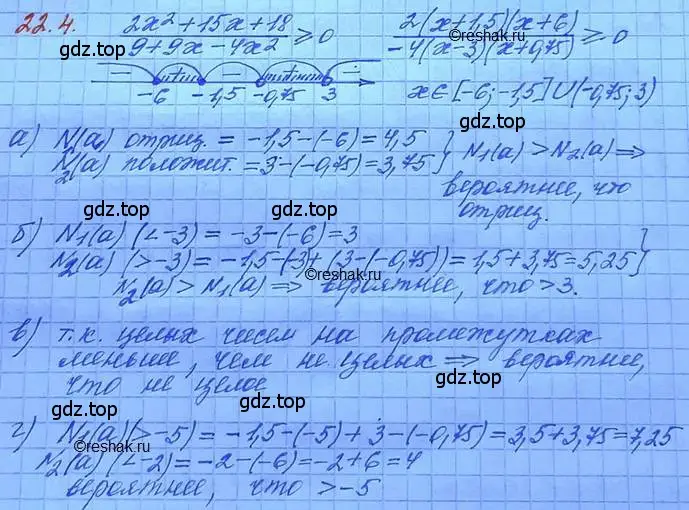 22.4. (2x² + 15x + 18)/(9 + 9x − 4x²) ≥ 0    2(x+1,5)(x+6)/(−4(x−3)(x+0,75)) ≥ 0
− + − + −
−6 −1,5 −0,75 3    x ∈ [−6; −1,5] ∪ (−0,75; 3)
а) N₁(a) отриц. = −1,5−(−6) = 4,5
N₂(a) положит. = 3−(−0,75) = 3,75 } N₁(a) > N₂(a) ⇒
gdz.top
gdz.top
gdz.top
вероятнее, что
отриц.
б) N₁(a) (< −3) = −3−(−6) = 3
N₂(a) (> −3) = −1,5−(−3) + (3−(−0,75)) = 1,5+3,75 = 5,25 }
gdz.top
©reshak.ru
©reshak.ru
N₂(a) > N₁(a) ⇒ вероятнее, что > 3.
в) т.к. целых чисел на промежутках
меньше, чем не целых ⇒ вероятнее,
gdz.top
что не целое
gdz.top
gdz.top
г) N₁(a) (> −5) = −1,5−(−5) + 3−(−0,75) = 3,5+3,75 = 7,25
N₂(a) (< −2) = −2−(−6) = −2+6 = 4
©reshak.ru
вероятнее, что > −5
gdz.top
gdz.top